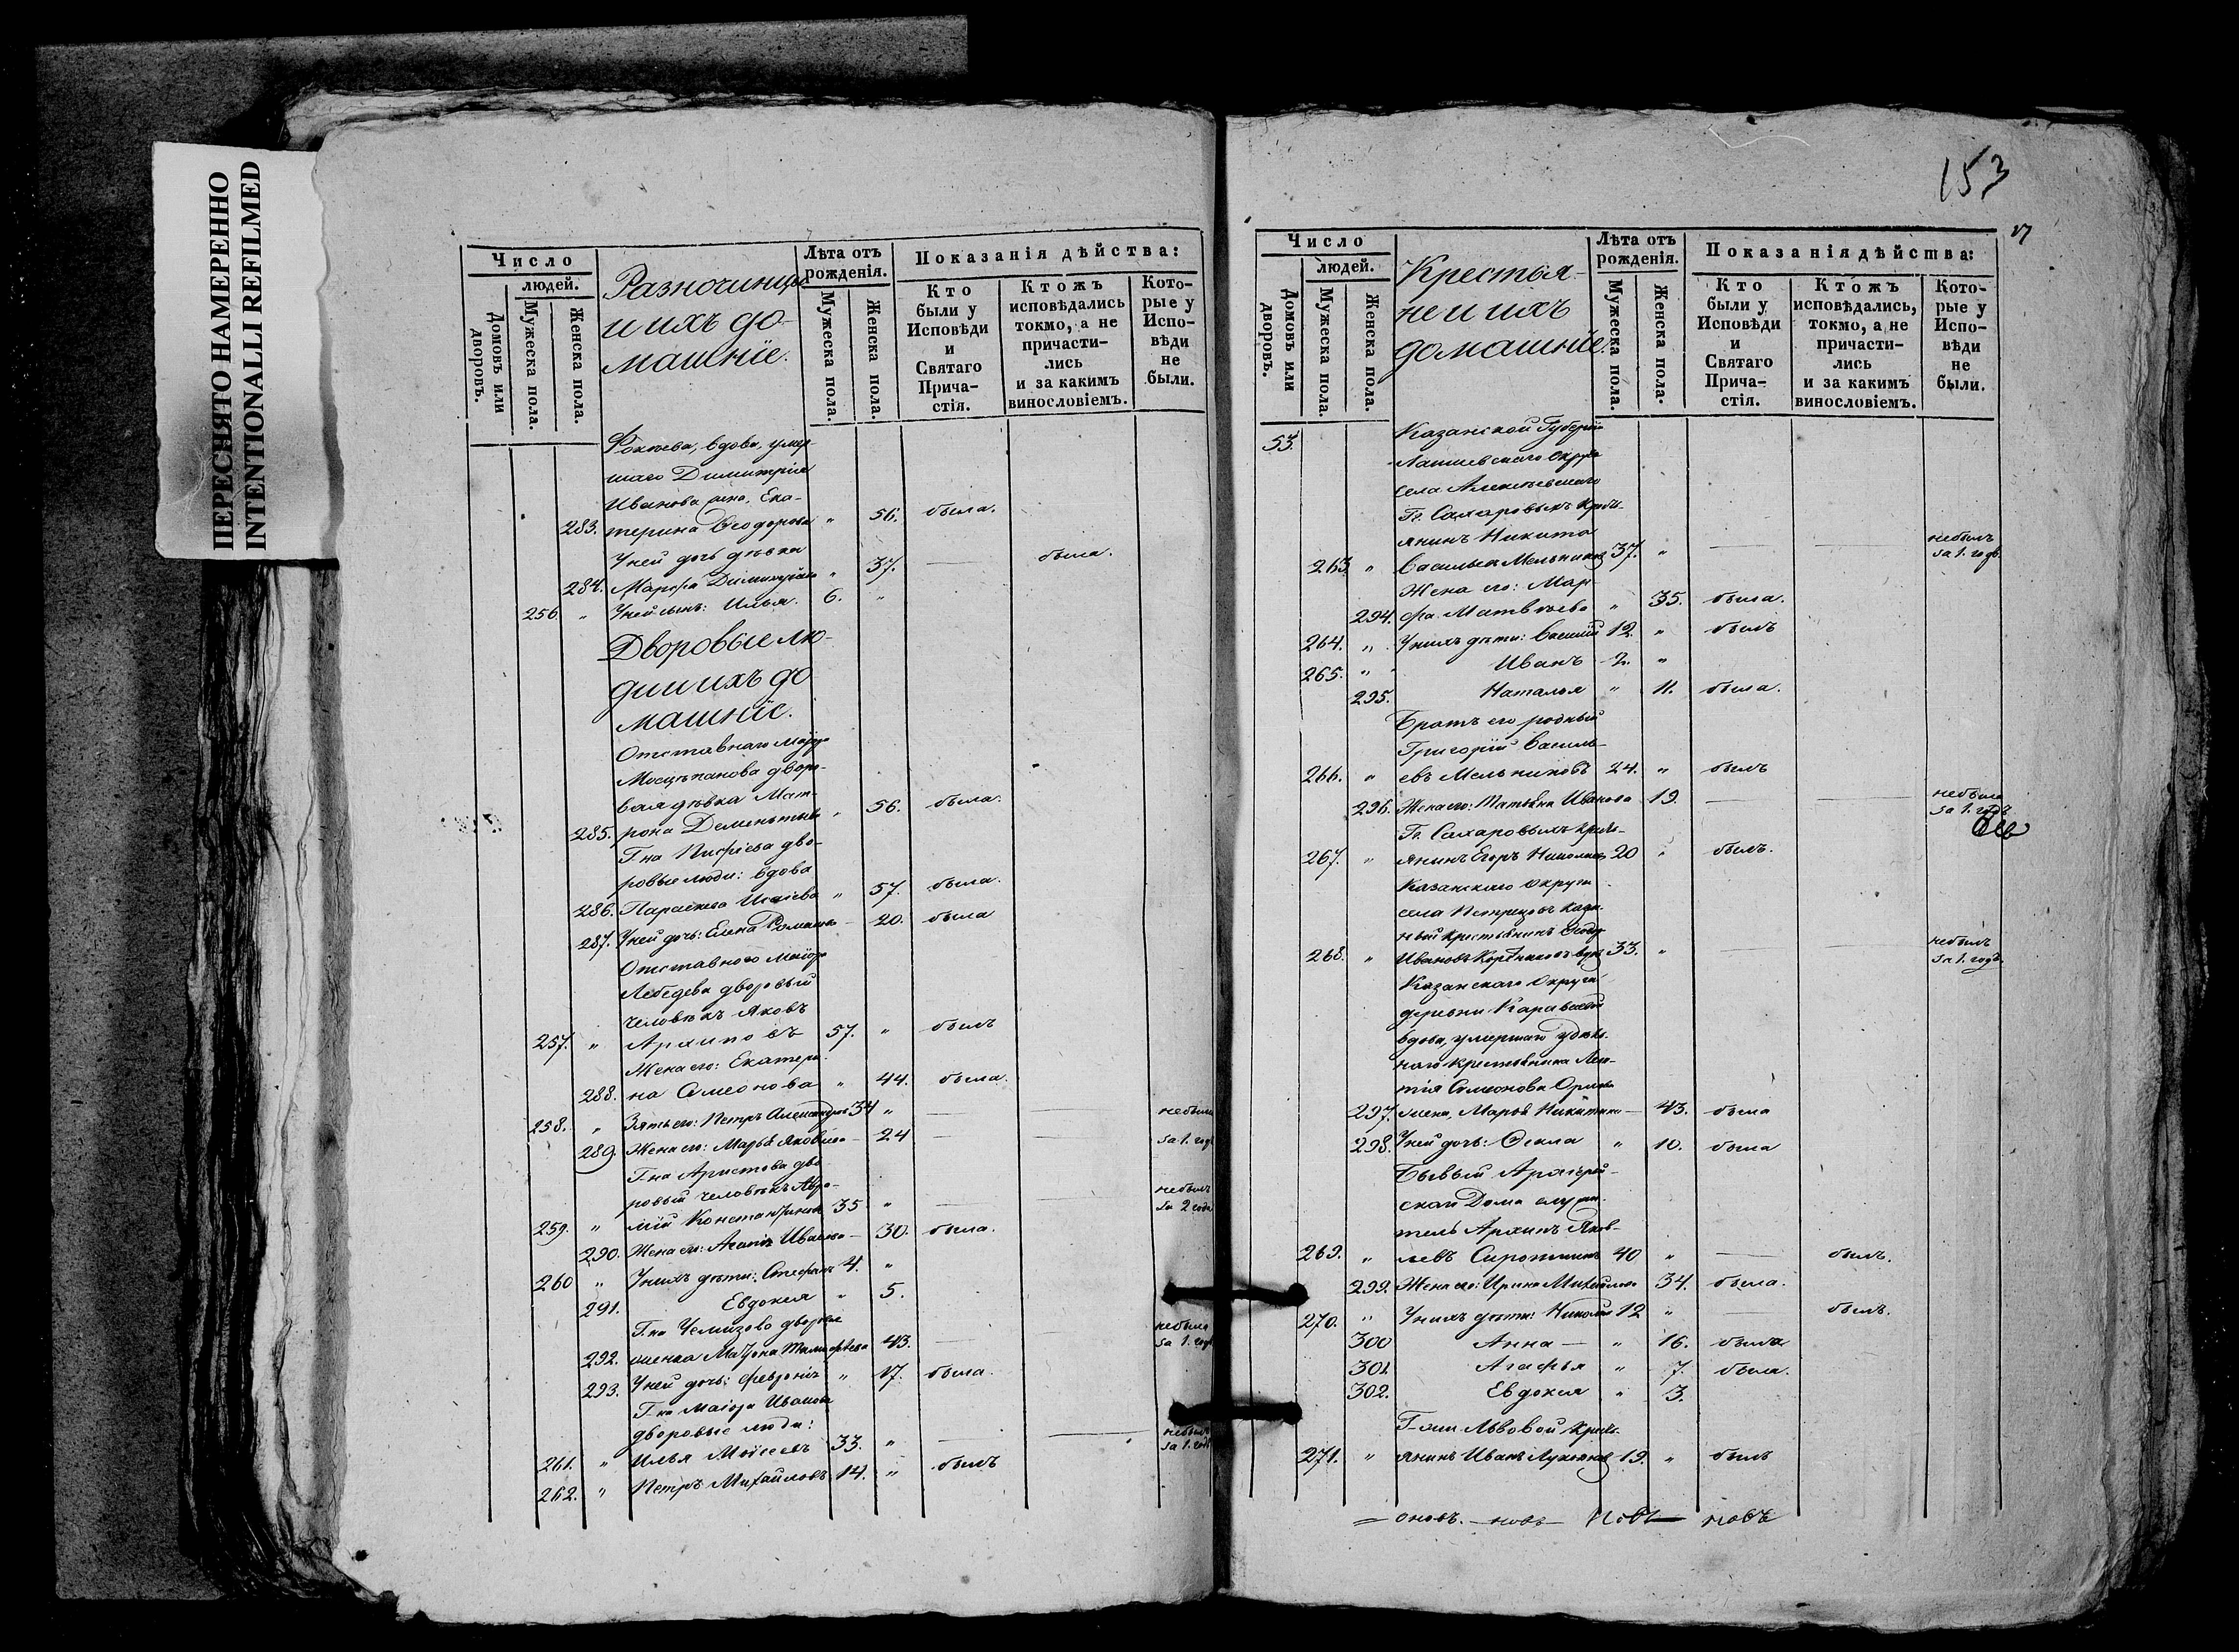 ПЕРЕСНЯТО НАМЕРЕННО
INTENTIONALLI REFILMED
Число
людей.
Домовъ или дворовъ.
Мужеска пола.
Женска пола.
Разночинцы
и ихъ до-
машніе.
Лѣта отъ рожденія.
Мужеска пола.
Женска пола.
Показанія дѣйства:
Кто были у Исповѣди и Святаго Прича-стія.
Ктожъ исповѣдались токмо, а не причасти-лись и за какимъ винословіемъ.
Кото-рые у Испо-вѣди не были.
вдова, умер-
шаго Димитрія
Иванова жена, Ека-
283. терина Ѳеодорова " 56. была.
У ней дочь дѣвка
284. Марфа Димитріева " 37. — была.
256 " У ней сынъ: Илья. 6. "
Дворовые лю-
ди и ихъ до
машніе.
Отставнаго Маіора
Мосцепанова дворо-
вая дѣвка Мат-
285. рона Дементьева " 56. была.
Г-на дво-
ровые люди: вдова
286. Параскева Исаіева " 57. была.
287. У ней дочь: Елена Романова — 20. была
Отставнаго Маіора
Лебедева дворовый
человѣкъ Яковъ
257. " Архиповъ 57. " былъ
Жена его: Екатери-
288. на Симеонова " 44. была.
258. " Зять его: Петръ Александровъ 34 " — небыли
289. Жена его: Марья Яковлева — 24 — за 1. годъ
Г-на Аристова дво-
ровый человѣкъ Авра-
259. " мій Константиновъ 35 " — небылъ за 2 года
290. Жена его: Агапія Иванова — 30. была.
260 " У нихъ дѣти: Стефанъ 4. "
291. Евдокия " 5.
Г-на Чемизова дворовая
292. женка Матрона 43. — небыла за 1. годъ
293. У ней дочь: Февронія " 17. была.
Г-на Маіора Иванова
дворовые люди:
261. " Илья Моѵсеевъ 33. " — небылъ за 1. годъ
262. " Петръ Михайловъ 14. " былъ
153
Число
людей.
Домовъ или дворовъ.
Мужеска пола.
Женска пола.
Крестья-
не и ихъ
домашніе.
Лѣта отъ рожденія.
Мужеска пола.
Женска пола.
Показанія дѣйства:
Кто были у Исповѣди и Святаго Прича-стія.
Ктожъ исповѣдались, токмо, а не причасти-лись и за какимъ винословіемъ.
Кото-рые у Испо-вѣди не были.
53. Казанской Губерніи
Лаишевскаго Округа
села Алексѣевскаго
Гг. Сахаровыхъ кресть-
янинъ Никита
263. " Васильевъ Мельниковъ 37. " — небылъ за 1. годъ.
Жена его: Мар-
294. фа Матвѣева " 35. была.
264. " У нихъ дѣти: Василій 12. " былъ
265. " Иванъ 2. "
295. Наталья " 11. была.
Братъ его родный
Григорій Василь-
266. " евъ Мельниковъ 24. " былъ
296. Жена его: Татьяна Иванова 19. — небыла за 1. годъ
Гг. Сахаровыхъ кресть-
267. " янинъ Егоръ Николаевъ 20 " былъ.
Казанскаго Округа
села казен-
ный крестьянинъ
268. " Ивановъ 33. " — небылъ за 1. годъ.
Казанскаго Округа
деревни Караваевой
вдова, умершаго удѣль-
наго крестьянина Леон-
тія Симеонова Орлова
297. жена, Марья Никитина — 43. была
298. У ней дочь: Ѳекла " 10. была
Бывый Архіерей-
скаго Дома служи-
тель Архипъ Яков-
269. " левъ Сироткинъ 40 " — былъ.
299. Жена его: Ирина Михайлова 34. была.
270. " У нихъ дѣти: Николай 12 " — былъ.
300 Анна — " 16. была
301 Агафья " 7. была.
302. Евдокия " 3.
Г-жи Львовой кресть-
271. " янинъ Иванъ Лукояновъ 19. " былъ